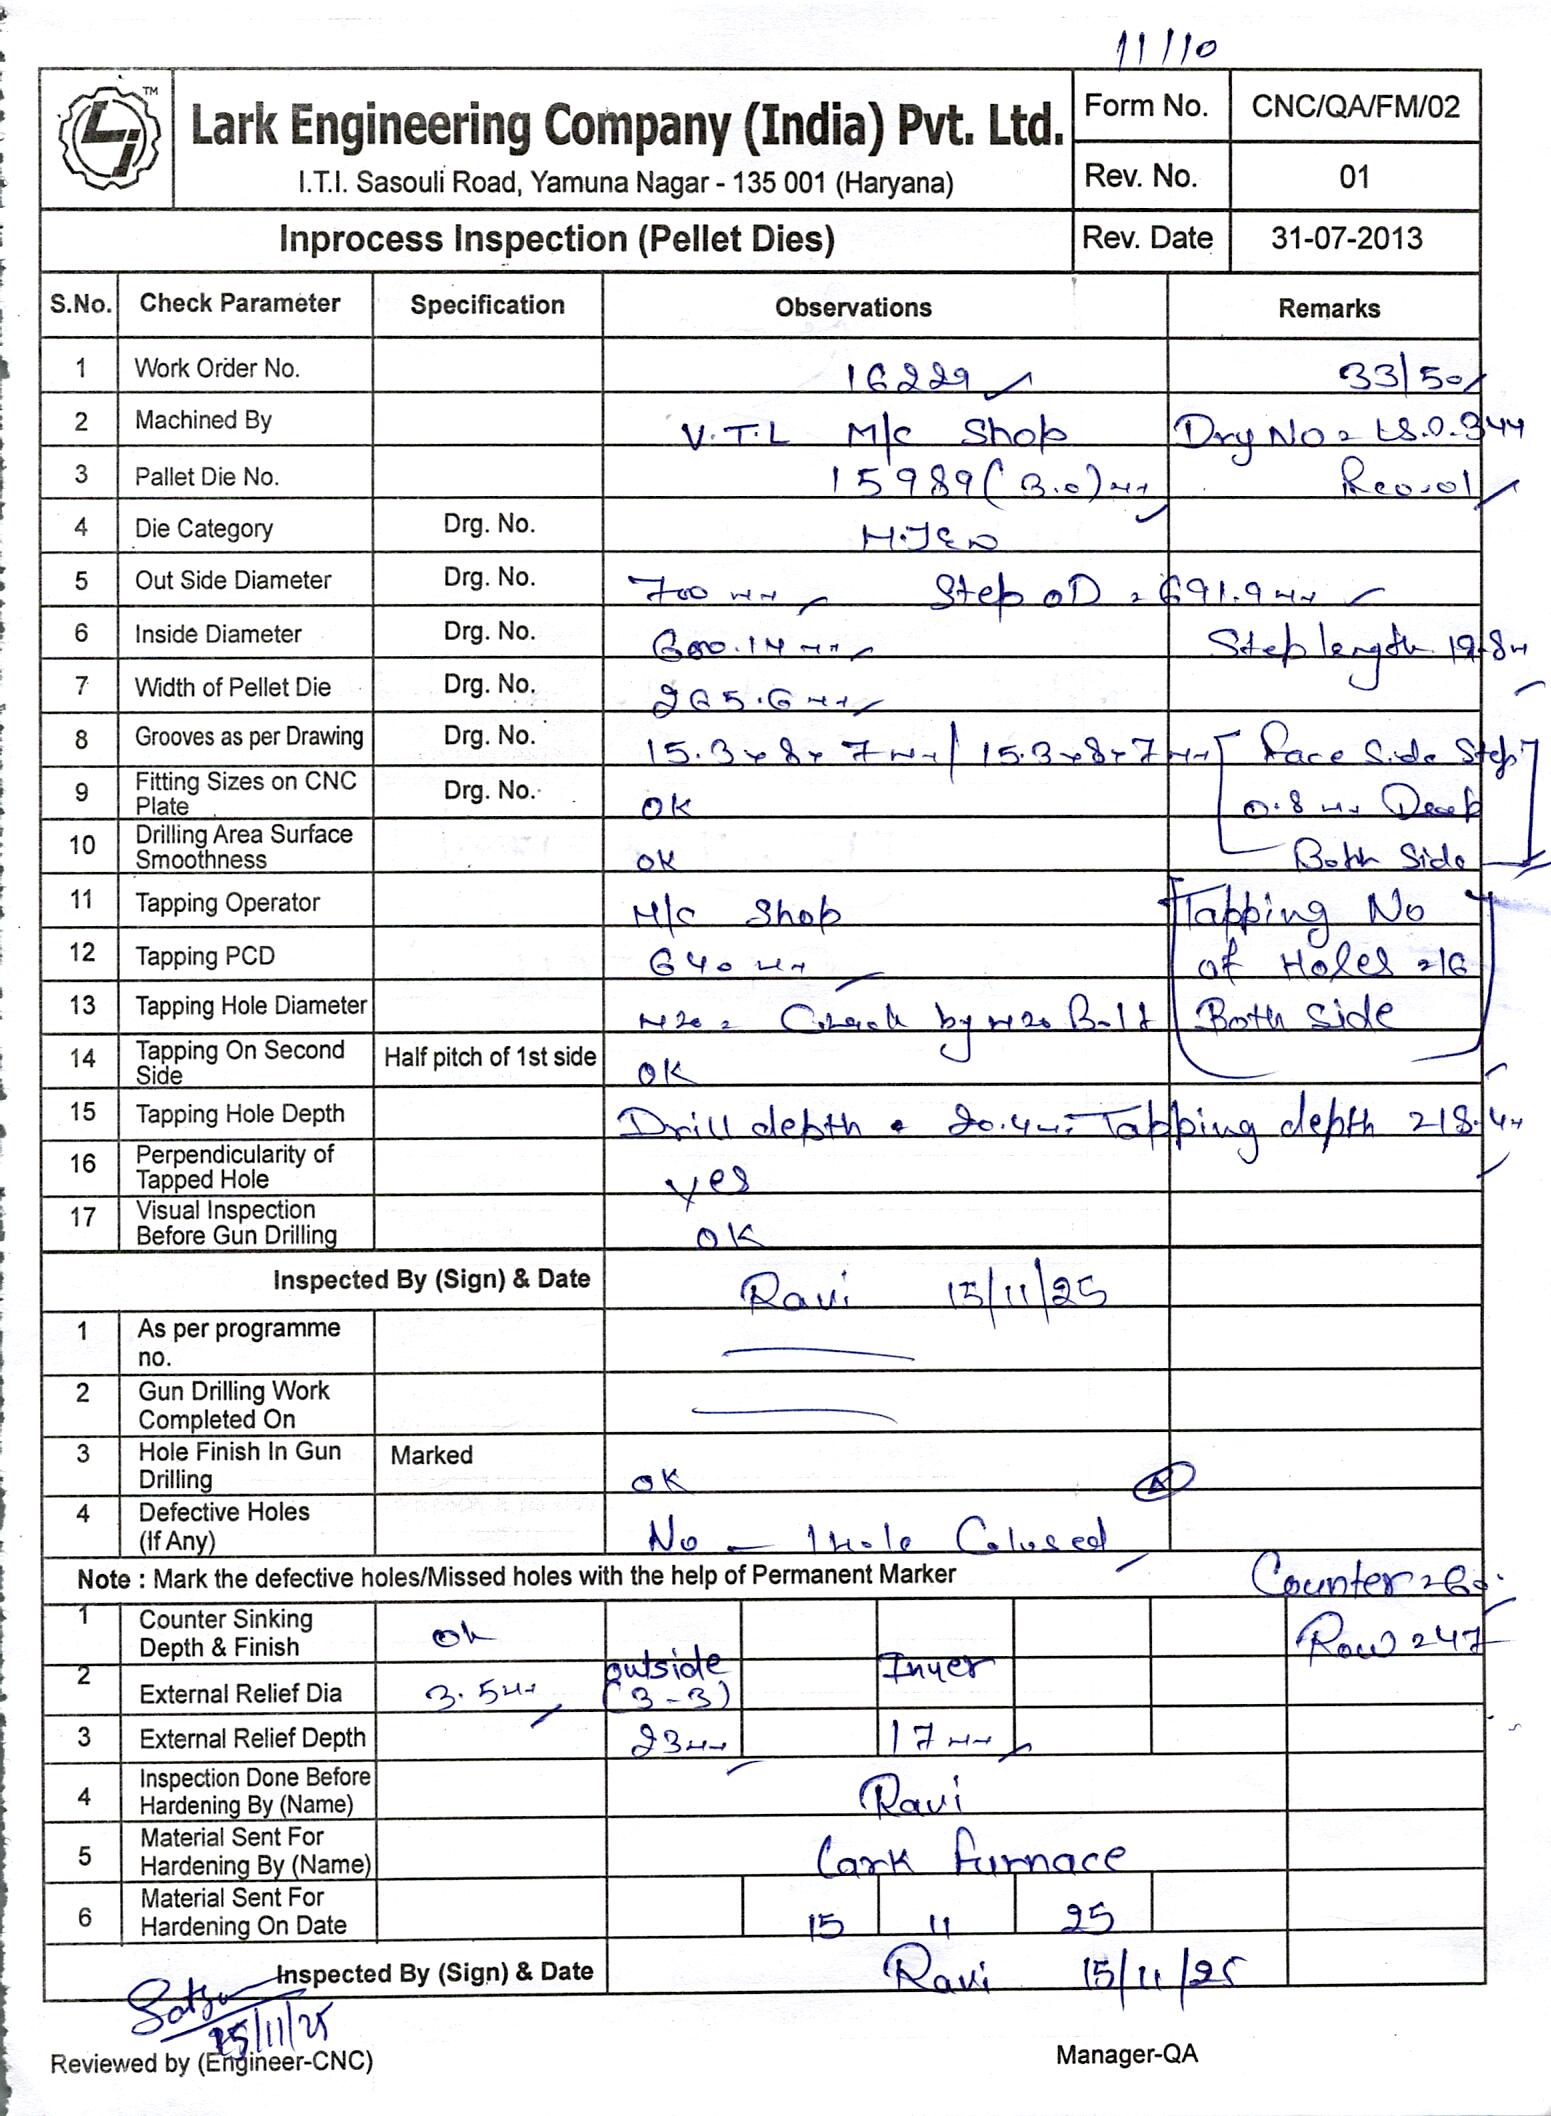 11/10
TM
Lark Engineering Company (India) Pvt. Ltd.
I.T.I. Sasouli Road, Yamuna Nagar - 135 001 (Haryana)
Form No. CNC/QA/FM/02
Rev. No. 01
Inprocess Inspection (Pellet Dies) Rev. Date 31-07-2013
S.No. Check Parameter Specification Observations Remarks
1 Work Order No. 16229 33/50
2 Machined By V.T.L M/c Shop
3 Pallet Die No. 15989 (3.0)
4 Die Category Drg. No.
5 Out Side Diameter Drg. No. 700 Step OD = 691.9
6 Inside Diameter Drg. No. 600.14 Step length 19.8
7 Width of Pellet Die Drg. No. 265.6
8 Grooves as per Drawing Drg. No. 15.3x8x7 / 15.3x8x7 Face Side Step
9 Fitting Sizes on CNC Plate Drg. No. OK 0.8 Deep
10 Drilling Area Surface Smoothness OK Both Side
11 Tapping Operator M/c Shop Tapping No
12 Tapping PCD 640 of Holes =16
13 Tapping Hole Diameter M20 = by M20 Bolt Both Side
14 Tapping On Second Side Half pitch of 1st side OK
15 Tapping Hole Depth Drill depth = 20.4 Tapping depth =18.4
16 Perpendicularity of Tapped Hole yes
17 Visual Inspection Before Gun Drilling OK
Inspected By (Sign) & Date Ravi 15/11/25
1 As per programme no.
2 Gun Drilling Work Completed On
3 Hole Finish In Gun Drilling Marked OK
4 Defective Holes (If Any) No - 1 Hole Colused
Note : Mark the defective holes/Missed holes with the help of Permanent Marker Counter =60
1 Counter Sinking Depth & Finish Ok Row =47
2 External Relief Dia 3.5 outside (3-3) Inyer
3 External Relief Depth 23 17
4 Inspection Done Before Hardening By (Name) Ravi
5 Material Sent For Hardening By (Name) Lark Furnace
6 Material Sent For Hardening On Date 15 11 25
Inspected By (Sign) & Date Ravi 15/11/25
15/11/25
Reviewed by (Engineer-CNC) Manager-QA